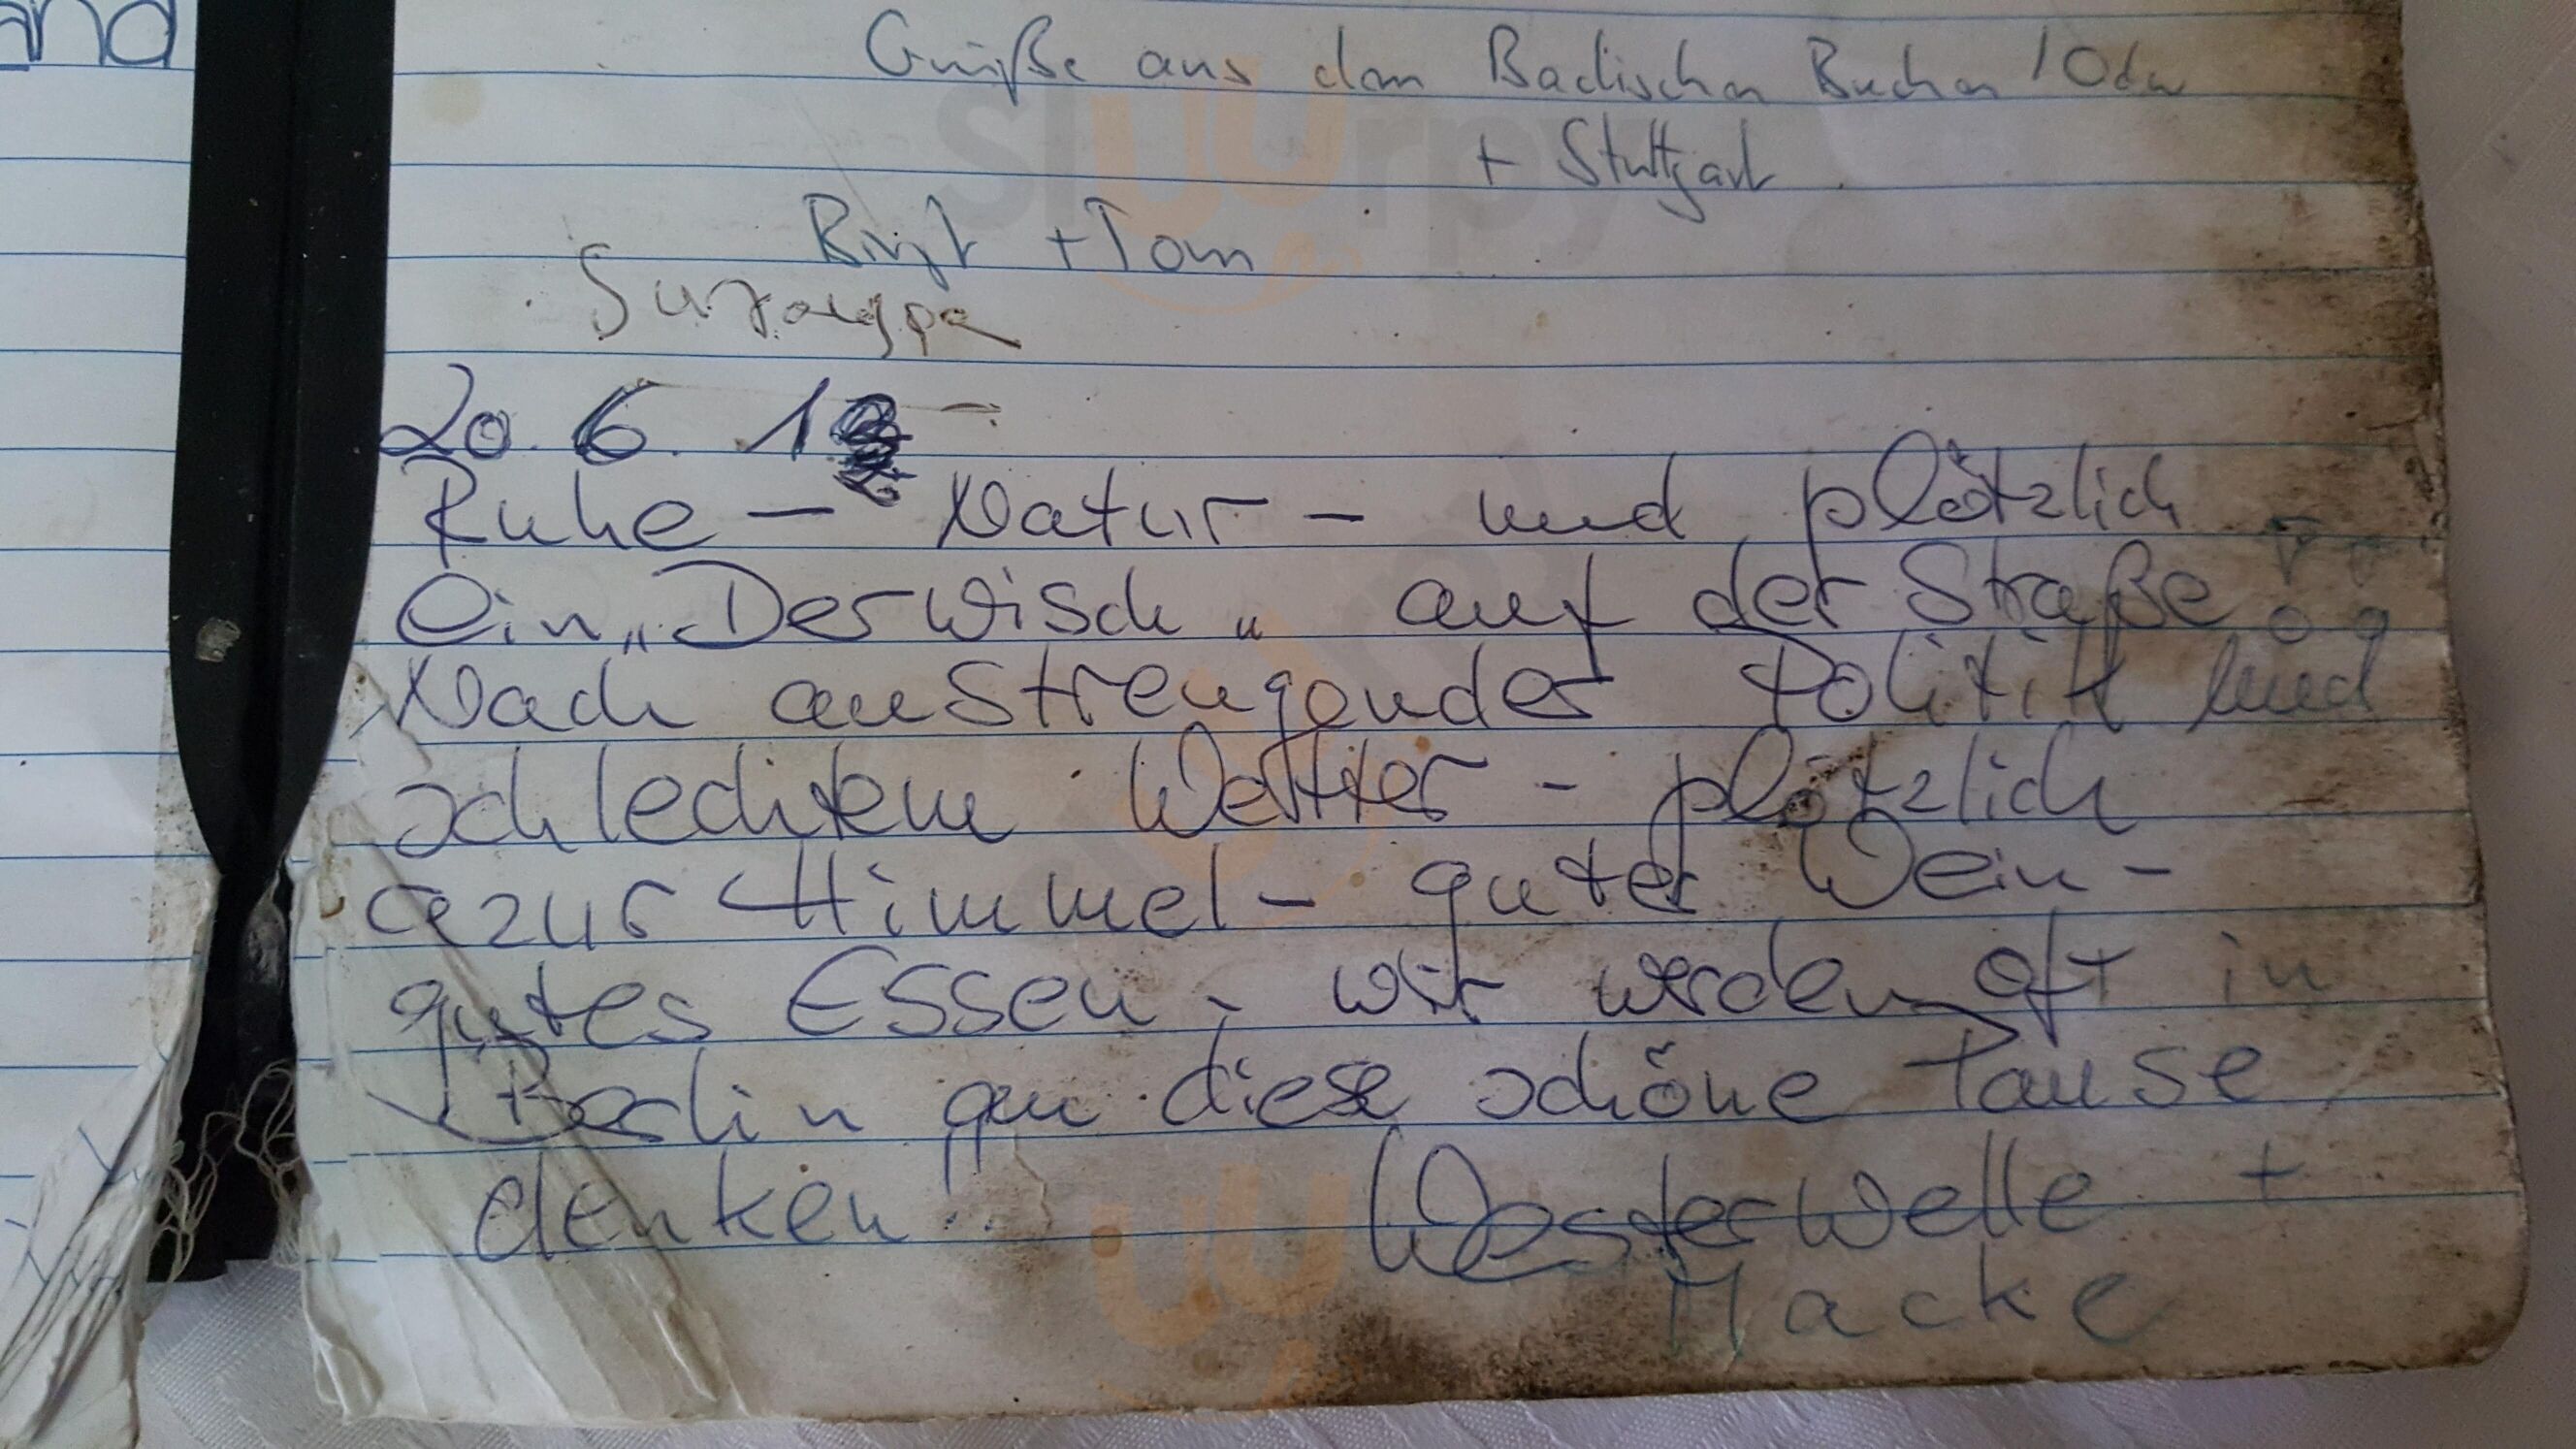 and
Grüße aus dem Badischen Buchen / Odw
+ Stuttgart
Birgit + Tom
20. 6. 1
Ruhe – Natur – und plötzlich
ein „Derwisch“ auf der Straße !!
Nach anstrengender Politik und
schlechtem Wetter – plötzlich
azur Himmel – guter Wein –
gutes Essen – wir werden oft in
Berlin an diese schöne Pause
denken!!
Westerwelle +
Macke
Sluurpy